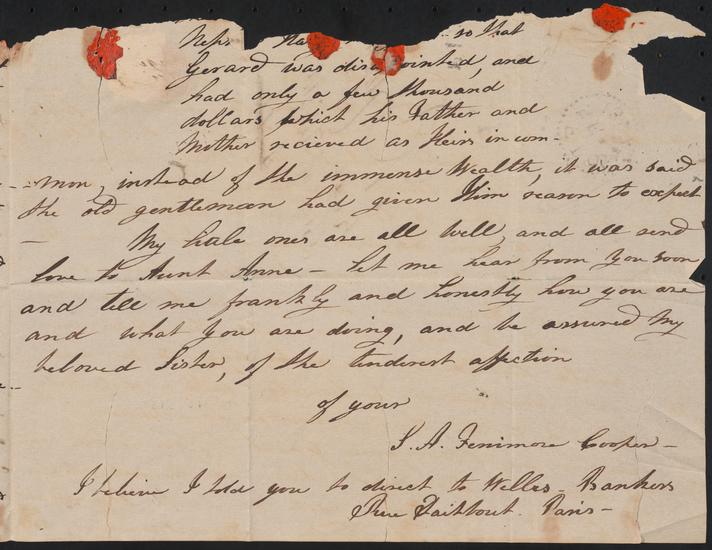 so that
Gerard was disappointed, and
had only a few thousand
dollars which his Father and
Mother recieved as Heirs in com-
-mon, instead of the immense Wealth, it was said
the old gentleman had given Him reason to expect
— My little ones are all well, and all send
love to Aunt Anne — let me hear from you soon
and tell me frankly and honestly how you are
and what you are doing, and be assured My
beloved Sister, of the tenderest affection
of your
S. A. Fenimore Cooper —
I believe I told you to direct to Welles - Bankers
Rue Taitbout. Paris —